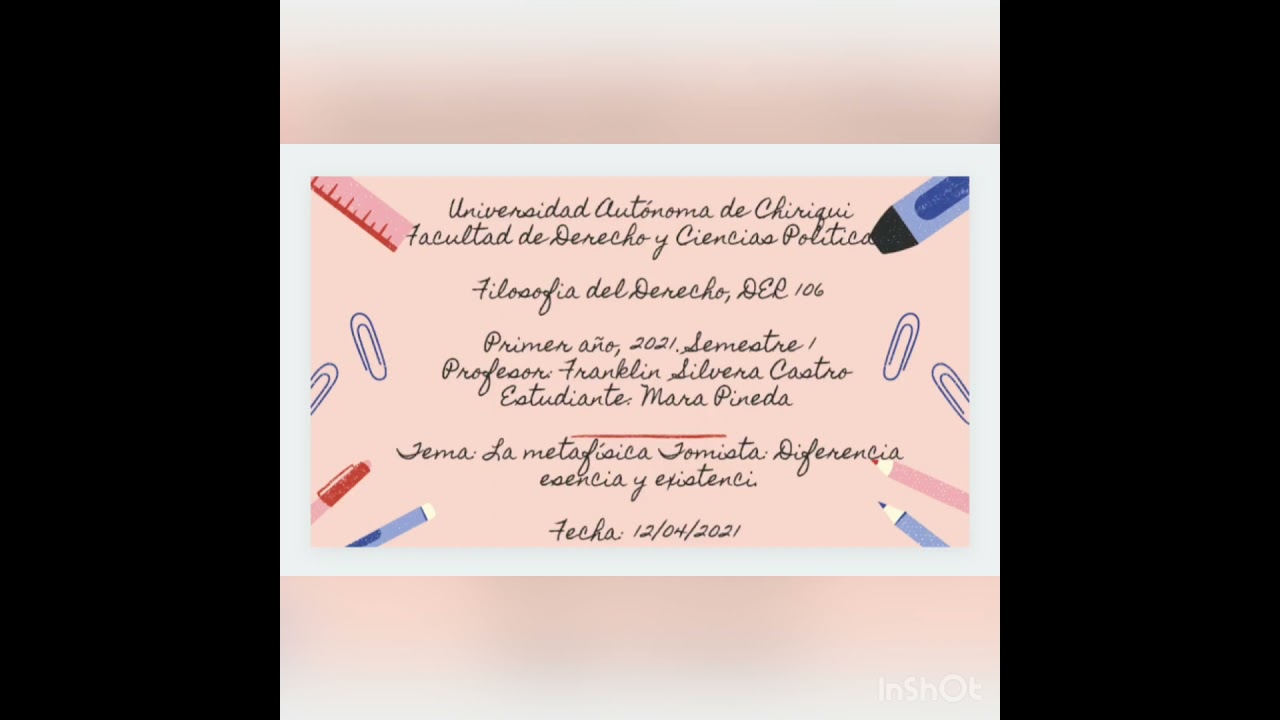 Universidad Autónoma de Chiriqui
Facultad de Derecho y Ciencias Politica
Filosofia del Derecho, DER 106
Primer año, 2021. Semestre 1
Profesor: Franklin Silvera Castro
Estudiante: Mara Pineda
Tema: La metafísica Tomista: Diferencia
esencia y existenci.
Fecha: 12/04/2021
InShOt